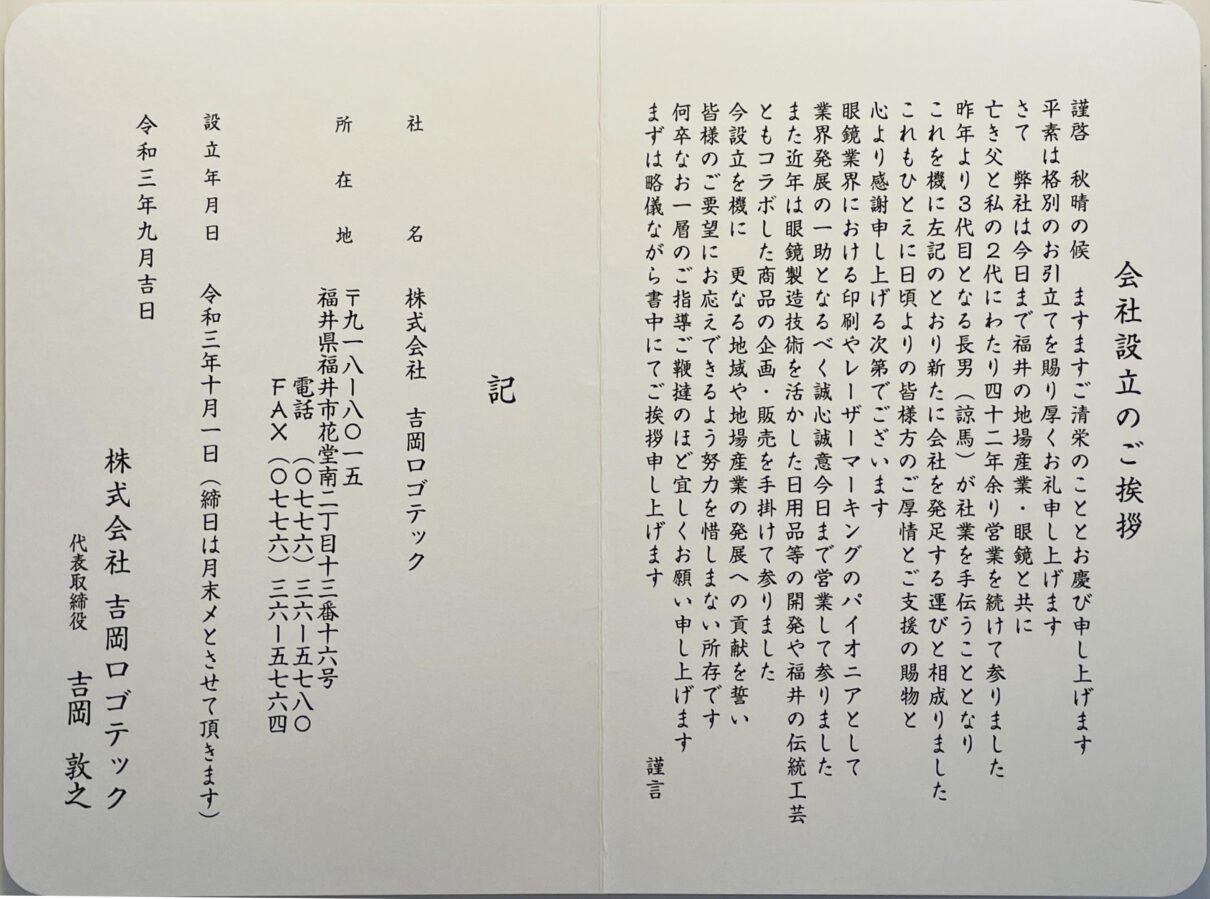 会社設立のご挨拶
謹啓　秋晴の候　ますますご清栄のこととお慶び申し上げます
平素は格別のお引立てを賜り厚くお礼申し上げます
さて　弊社は今日まで福井の地場産業・眼鏡と共に
亡き父と私の２代にわたり四十二年余り営業を続けて参りました
昨年より３代目となる長男（諒馬）が社業を手伝うこととなり
これを機に左記のとおり新たに会社を発足する運びと相成りました
これもひとえに日頃よりの皆様方のご厚情とご支援の賜物と
心より感謝申し上げる次第でございます
眼鏡業界における印刷やレーザーマーキングのパイオニアとして
業界発展の一助となるべく誠心誠意今日まで営業して参りました
また近年は眼鏡製造技術を活かした日用品等の開発や福井の伝統工芸
ともコラボした商品の企画・販売を手掛けて参りました
今設立を機に　更なる地域や地場産業の発展への貢献を誓い
皆様のご要望にお応えできるよう努力を惜しまない所存です
何卒なお一層のご指導ご鞭撻のほど宜しくお願い申し上げます
まずは略儀ながら書中にてご挨拶申し上げます　謹言
記
社名　株式会社　吉岡ロゴテック
所在地　〒九一八ー八〇一五
福井県福井市花堂南二丁目十三番十六号
電話　（〇七七六）三六ー五七八〇
ＦＡＸ（〇七七六）三六ー五七六四
設立年月日　令和三年十月一日（締日は月末〆とさせて頂きます）
令和三年九月吉日
株式会社　吉岡ロゴテック
代表取締役　吉岡　敦之